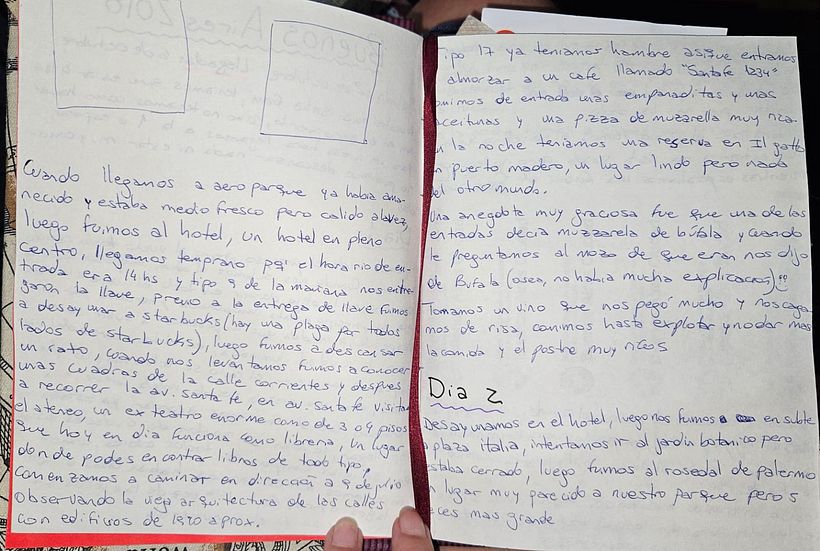 Cuando llegamos a aeroparque ya habia ama-
necido y estaba medio fresco pero calido a la vez,
luego fuimos al hotel, un hotel en pleno
centro, llegamos temprano pq' el horario de en-
trada era 14hs y tipo 9 de la mañana nos entre-
garon la llave, previo a la entrega de llave fuimos
a desayunar a starbucks (hay una plaga por todos
lados de starbucks), luego fuimos a descansar
un rato, cuando nos levantamos fuimos a conocer
unas cuadras de la calle corrientes y despues
a recorrer la av. santa fe, en av. santa fe visitam
el ateneo, un ex teatro enorme como de 3 o 4 pisos
que hoy en dia funciona como libreria, un lugar
donde podes encontrar libros de todo tipo,
comenzamos a caminar en dirección a 9 de julio
observando la vieja arquitectura de las calles
con edificios de 1920 aprox.
Tipo 17 ya teniamos hambre asique entramos
almorzar a un cafe llamado "Santafe 1234"
omimos de entrada unas empanaditas y unas
aceitunas y una pizza de muzarella muy rica.
n la noche teniamos una reserva en Il gatto
n puerto madero, un lugar lindo pero nada
del otro mundo.
Una anegdota muy graciosa fue que una de las
entradas decia muzzarela de búfala y cuando
le preguntamos al mozo de que eran nos dijo
de Bufala (osea, no habia mucha explicacion)
Tomamos un vino que nos pegó mucho y nos caga
mos de risa, comimos hasta explotar y no dar mas
la comida y el postre muy ricos
Dia 2
Desayunamos en el hotel, luego nos fuimos en subte
a plaza italia, intentamos ir al jardin botanico pero
staba cerrado, luego fuimos al rosedal de palermo
n lugar muy parecido a nuestro parque pero 5
eces mas grande